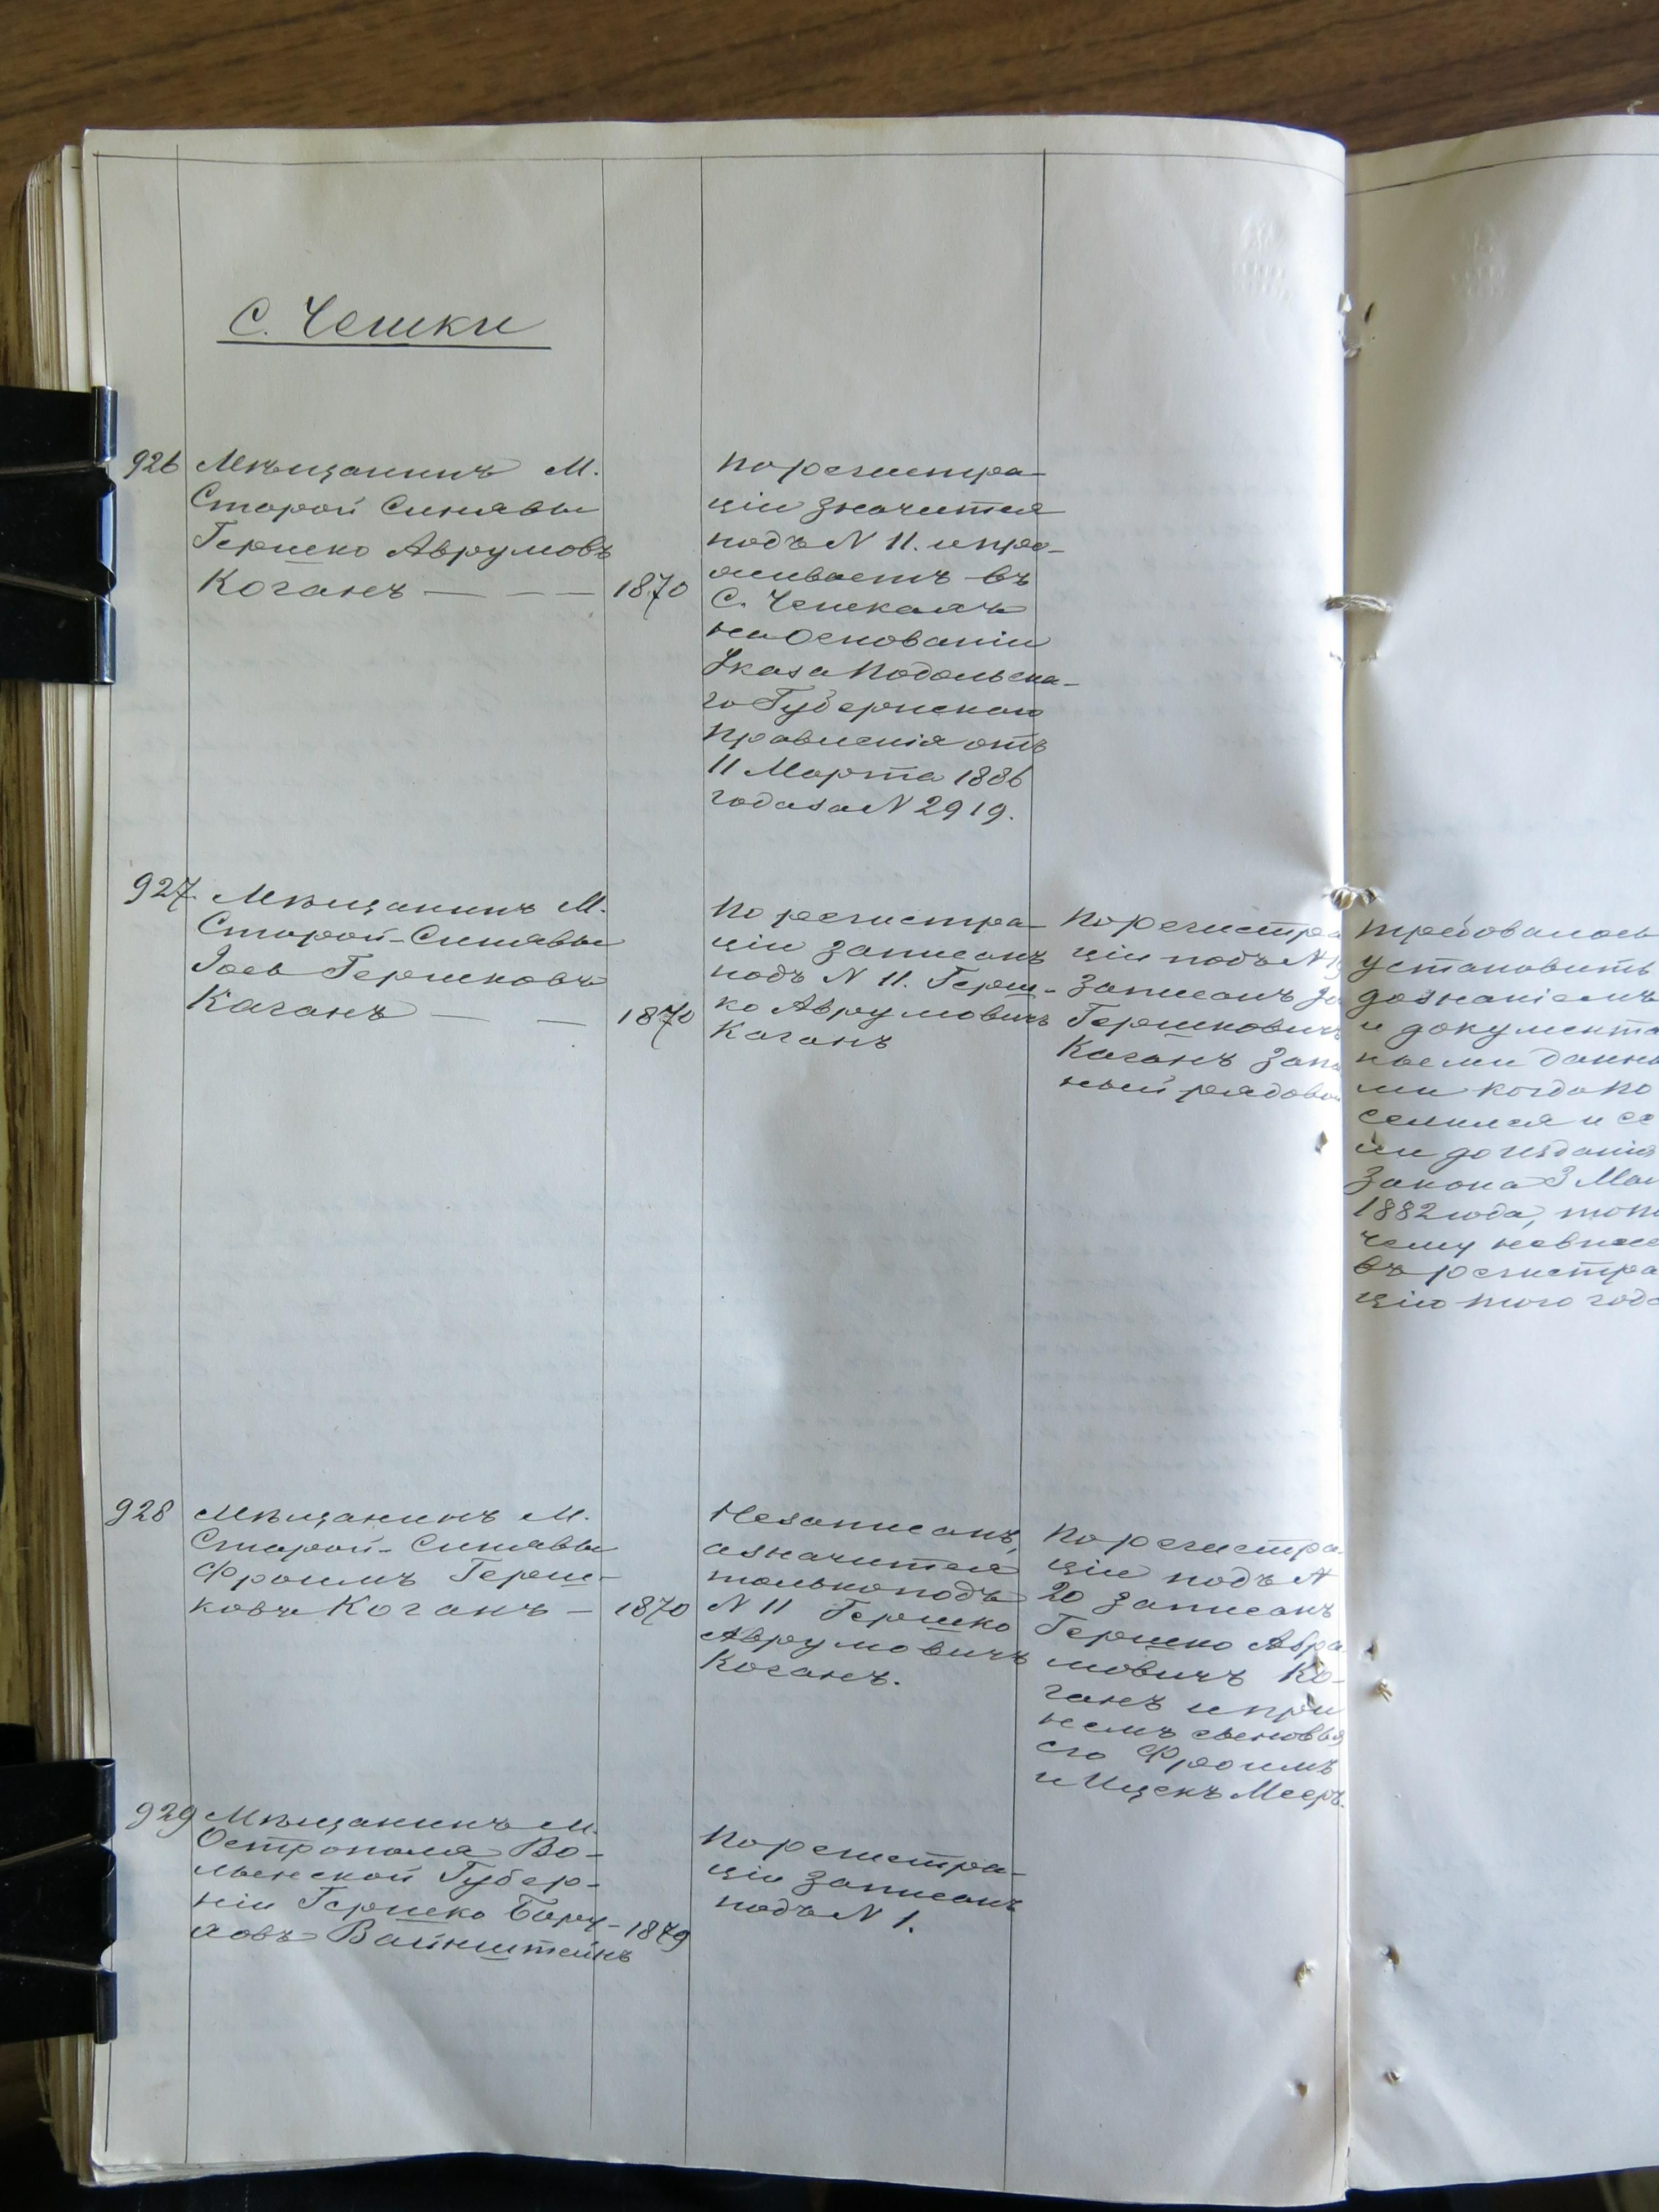 С. Чешки
926 Мѣщанинъ М.
Старой Синявы
Гершко Аврумовъ
Коганъ — — — 1870
По регистра-
ціи значится
подъ N 11. и про-
живаетъ въ
С. Чешкахъ
на основаніи
Указа Подольска-
го Губернскаго
Правленія отъ
11 Марта 1886
года за N 2919.
927 Мѣщанинъ М.
Старой-Синявы
Іось Гершковъ
Каганъ — — 1870
По регистра-
ціи записанъ
подъ N 11. Герш-
ко Аврумовичъ
Каганъ
По регистра
ціи подъ N
записанъ
Гершковичъ
Каганъ запа
ный рядовой
требовалось
установить
дознаніемъ
и документа
ными данны
ми когда по
селился и ес
ли до изданія
Закона 3 Мая
1882 года, то по
чему не внесе
въ регистра
цію того года
928 Мѣщанинъ М.
Старой-Синявы
Фроимъ Герш-
ковъ Коганъ — 1870
Незаписанъ,
а значится
только подъ
N 11 Гершко
Аврумовичъ
Коганъ.
По регистра
ціи подъ N
20 записанъ
Гершко Абра
мовичъ Ко-
ганъ и при
немъ сыновья
его Фроимъ
и Ицекъ Мееръ.
929 Мѣщанинъ М.
Острополя Во-
лынской Губер-
ніи Гершко Бору- 1879
ховъ Вайнштейнъ
По регистра-
ціи записанъ
подъ N 1.